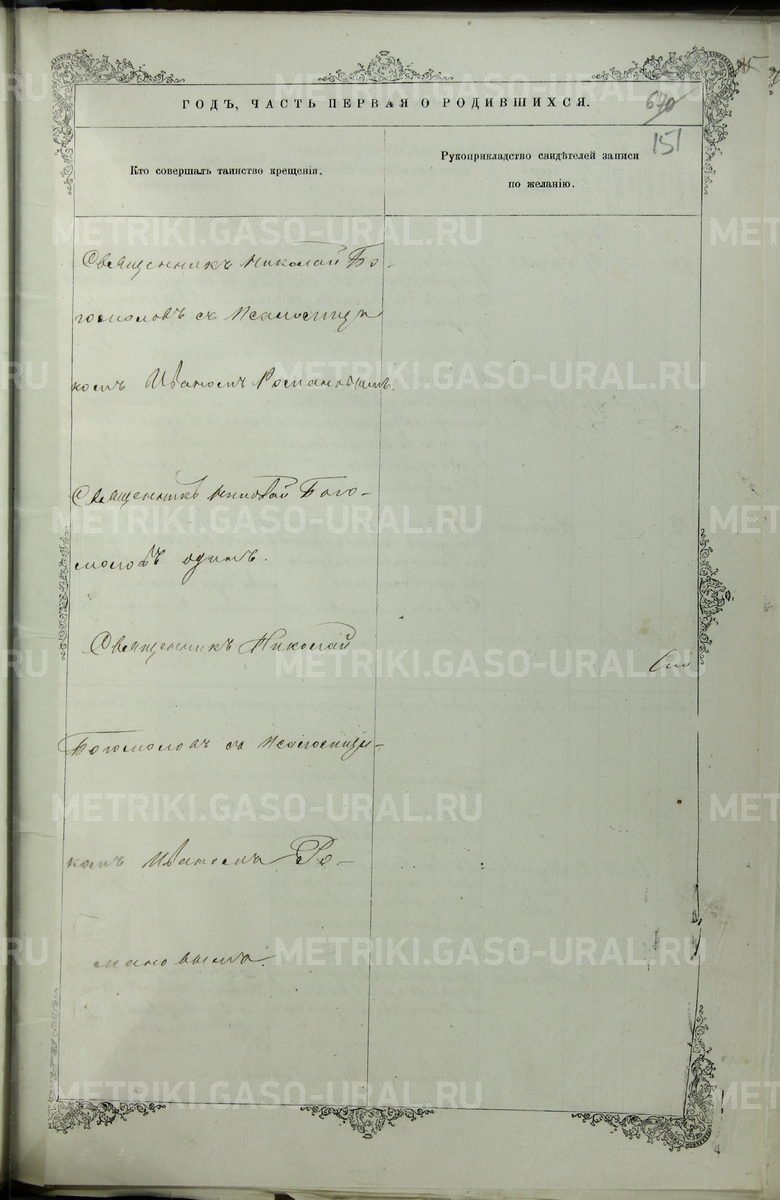 ГОДЪ, ЧАСТЬ ПЕРВАЯ О РОДИВШИХСЯ.
670
151
Кто совершалъ таинство крещенія.
Рукоприкладство свидѣтелей записи
по желанію.
Священникъ Николай Бо-
гомоловъ съ Псаломщи
комъ Иваномъ Романовымъ.
Священникъ Николай Бого-
моловъ одинъ.
Священникъ Николай
Богомоловъ съ Псаломщи-
комъ Иваномъ Ро-
мановымъ.
METRIKI.GASO-URAL.RU